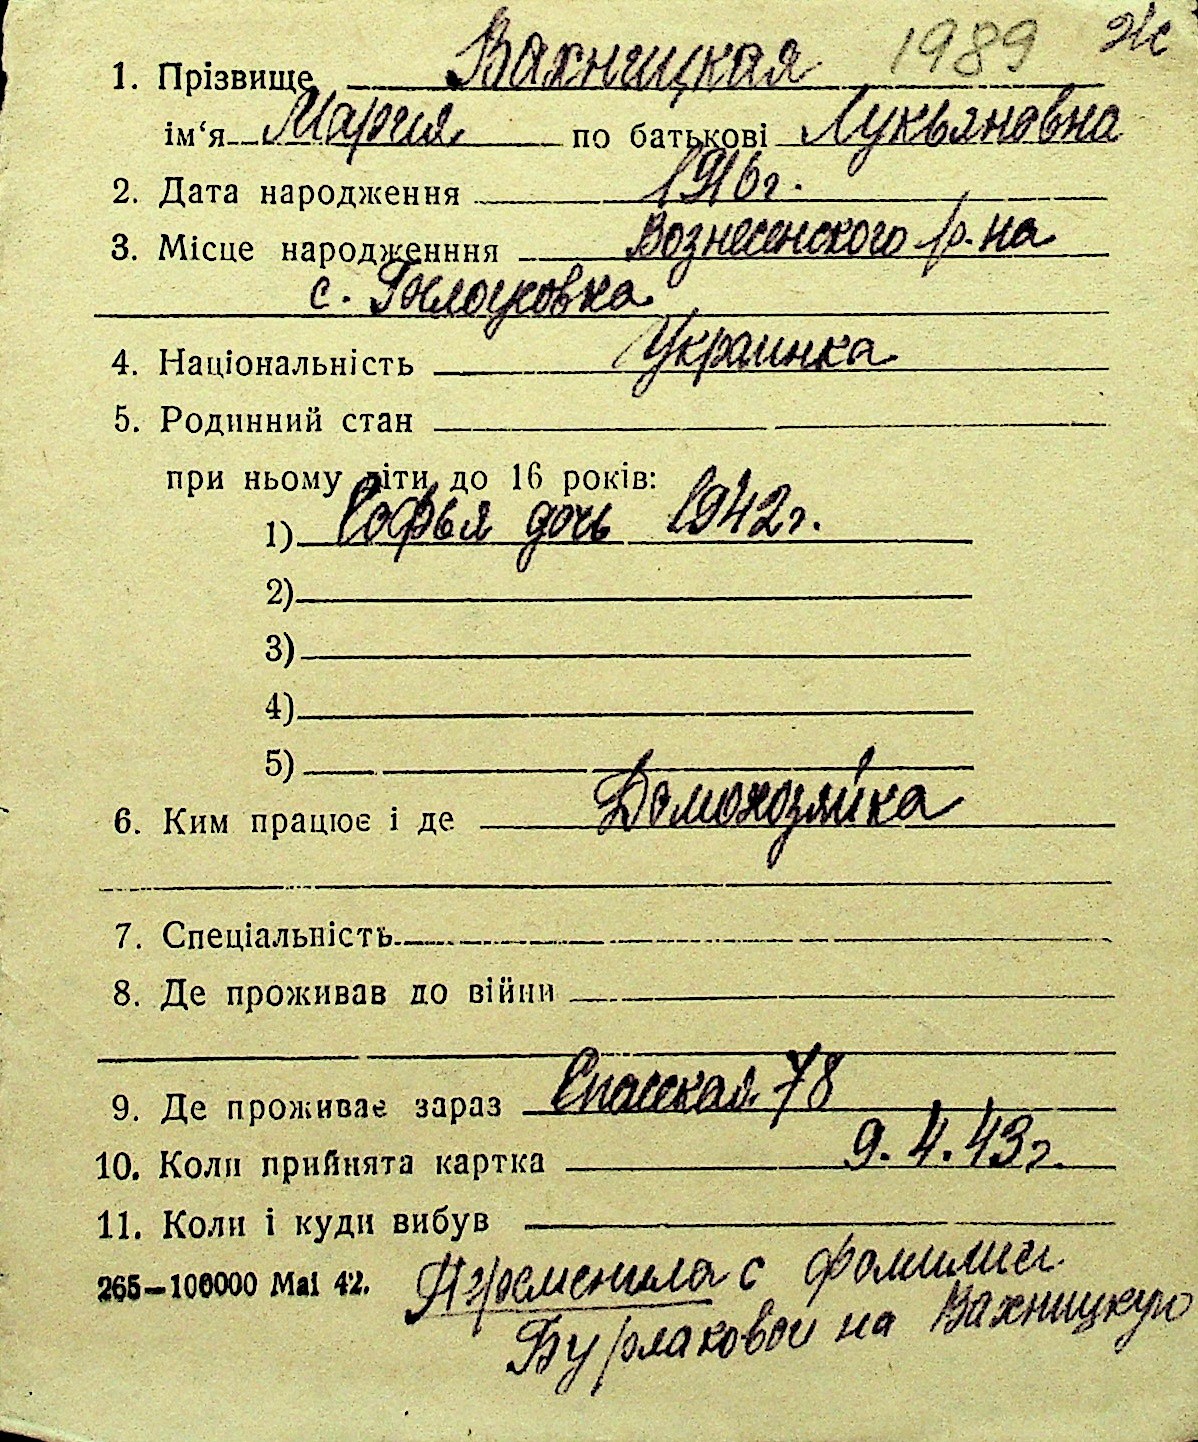 1989 Ж
1. Прізвище Вахницкая
ім‘я Мария по батькові Лукьяновна
2. Дата народження 1916 г.
3. Місце народженння Вознесенского р-на
с.
4. Національність Украинка
5. Родинний стан
при ньому діти до 16 років:
1) Софья дочь 1942 г.
2)
3)
4)
5)
6. Ким працює і де Домохозяйка
7. Спеціальність
8. Де проживав до війни
9. Де проживає зараз Спасская 78
10. Коли прийнята картка 9.4.43 г.
11. Коли і куди вибув
265—100000 Mai 42. с фамилии
Бурлаковой на Вахницкую